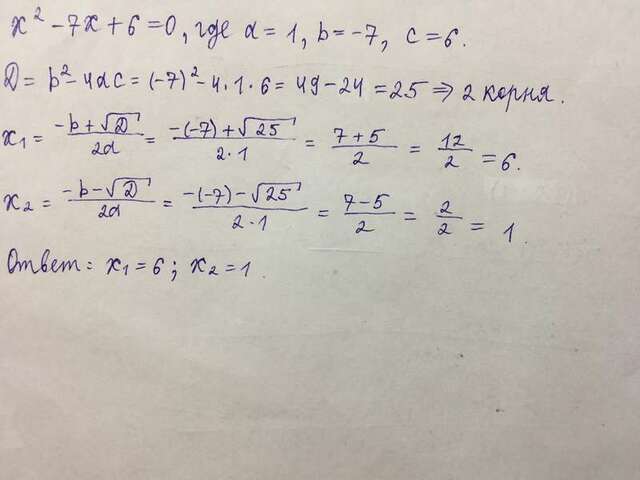 x² - 7x + 6 = 0, где a = 1, b = -7, c = 6.
D = b² - 4ac = (-7)² - 4·1·6 = 49 - 24 = 25 ⇒ 2 корня.
x₁ = (-b + √D)/(2a) = (-(-7) + √25)/(2·1) = (7 + 5)/2 = 12/2 = 6.
x₂ = (-b - √D)/(2a) = (-(-7) - √25)/(2·1) = (7 - 5)/2 = 2/2 = 1.
Ответ: x₁ = 6; x₂ = 1.